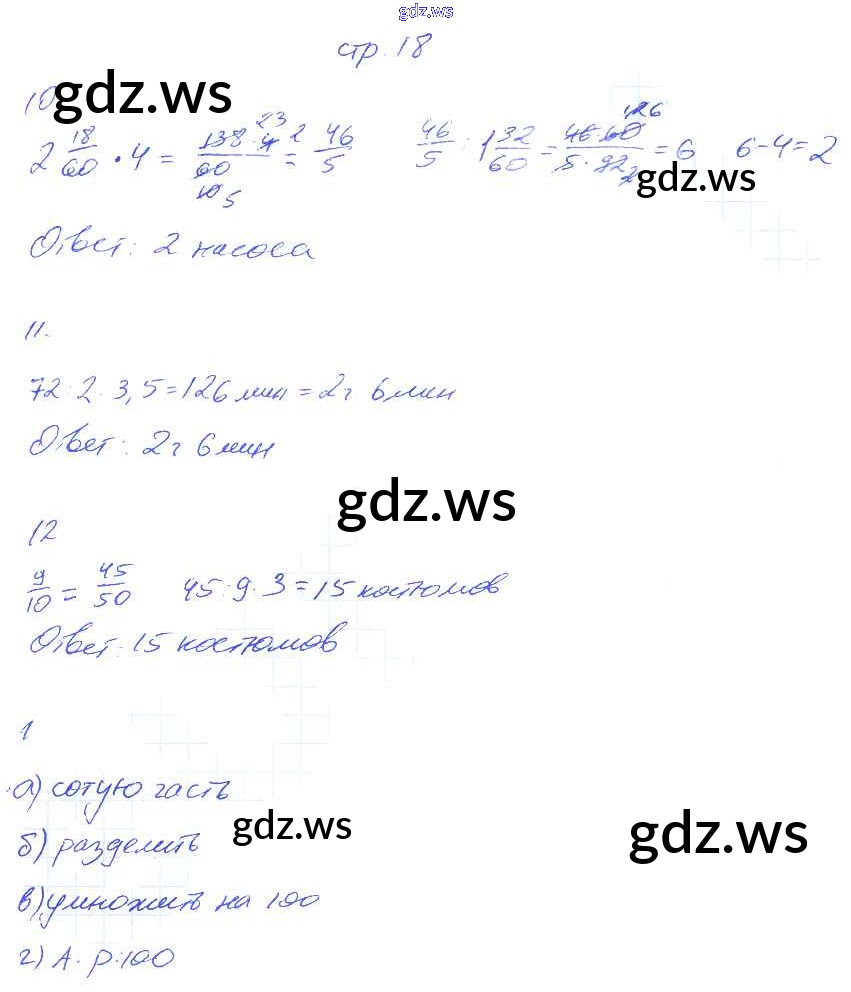 gdz.ws
стр. 18
10 gdz.ws
2 18/60 · 4 = 138·4/60 = 46/5   46/5 : 1 32/60 = 46·60/5·92 = 6   6-4=2
gdz.ws
Ответ: 2 насоса
11.
72 : 2 · 3,5 = 126 мин = 2ч 6мин
Ответ: 2ч 6мин
gdz.ws
12
9/10 = 45/50   45 : 9 · 3 = 15 костюмов
Ответ: 15 костюмов
1
а) сотую часть
gdz.ws
gdz.ws
б) разделить
в) умножить на 100
г) A · p : 100